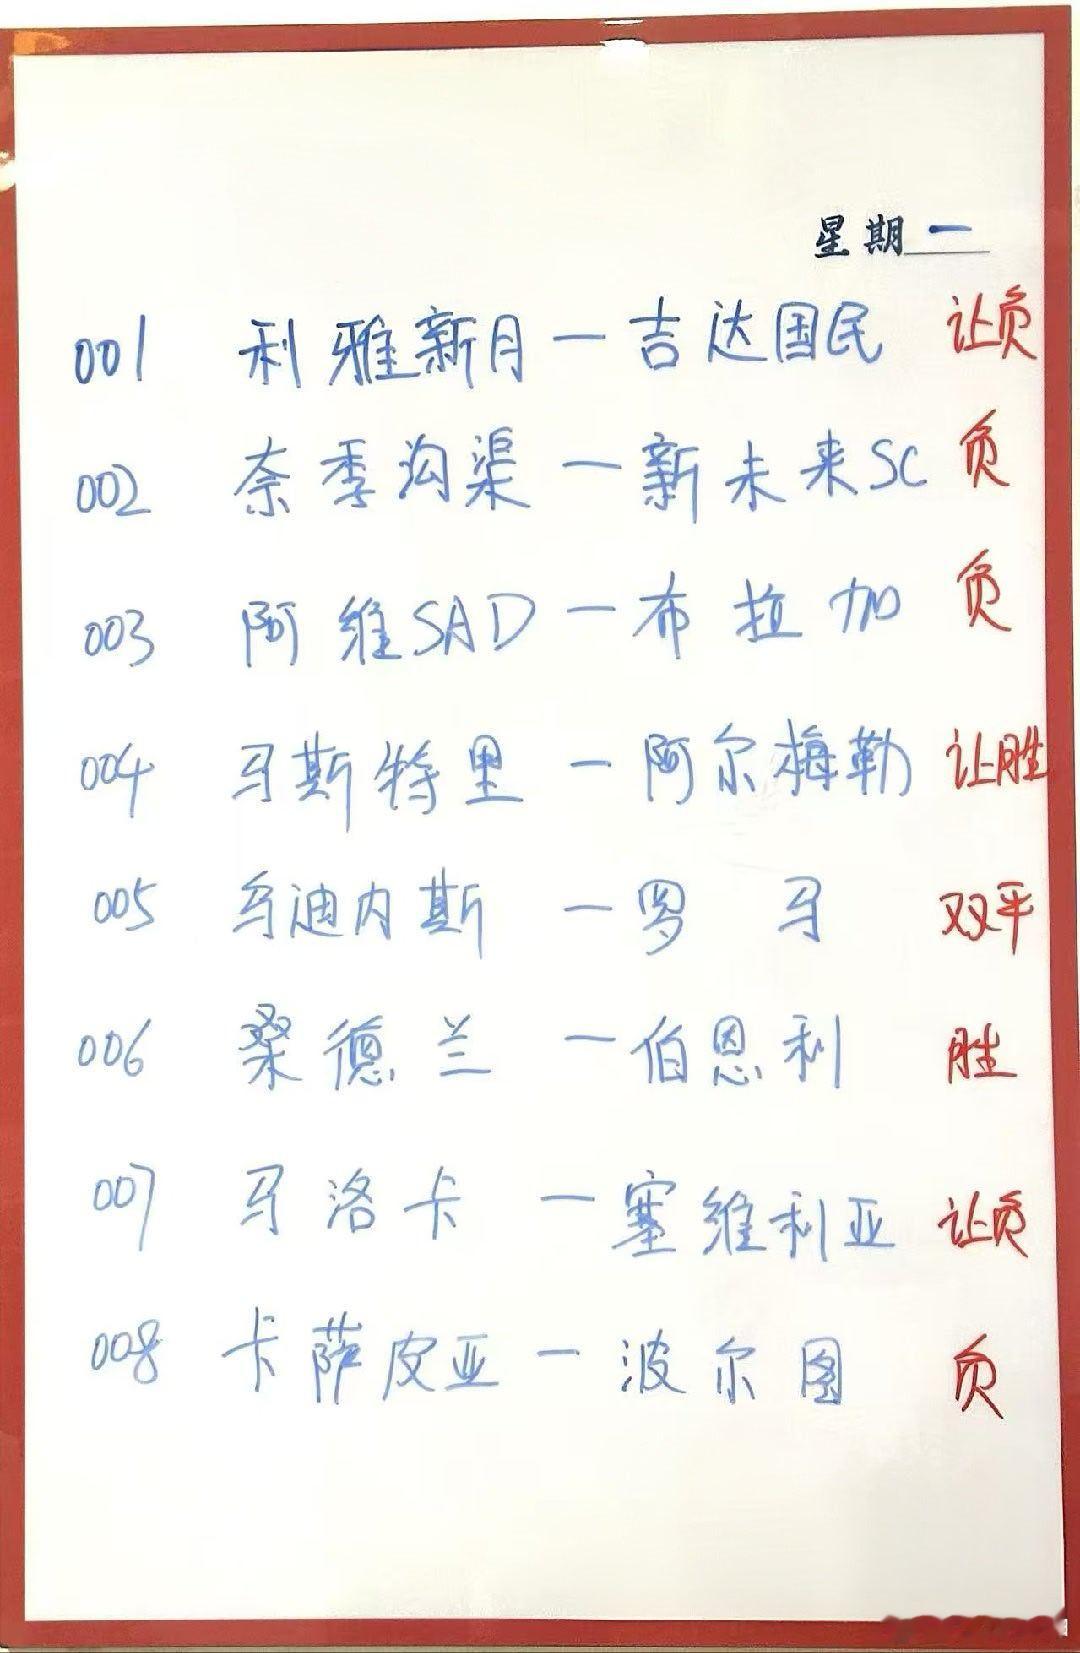 星期一
001 利雅新月一吉达国民 让负
002 奈季沟渠一新未来SC 负
003 阿维SAD一布拉加 负
004 马斯特里一阿尔梅勒 让胜
005 乌迪内斯一罗马 双平
006 桑德兰一伯恩利 胜
007 马洛卡一塞维利亚 让负
008 卡萨皮亚一波尔图 负